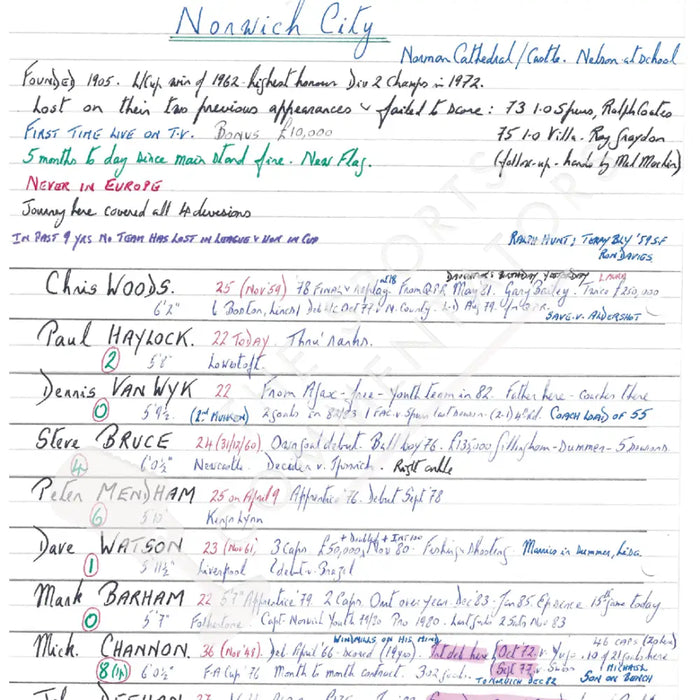 Norwich City
Norman Cathedral/Castle. Nelson at School
Founded 1905. L/Cup win of 1962 highest honour Div 2 Champs in 1972.
Lost on their two previous appearances & failed to score: 73 1.0 Spurs, Ralph Coates
First time live on T.V. Bonus £10,000 75 1.0 Villa. Ray Graydon
5 months to day since main stand fire. New Flag. (follow-up - hands by Mel Machin)
Never in Europe
Journey here covered all 4 divisions
In past 9 yrs no team has lost in League & won in Cup Ralph Hunt: Terry Bly '59 S.F
Ron Davies
Daughter: Birthday yesterday Laura
Chris Woods. 25 (Nov 59) '78 Final & Replay at 18 From QPR May 81. Gary Bailey. Twice £250,000
6'2" 6 Boston, Lincs) Deb Oct 77 v N. County. Aug 79 QPR.
Save v. Aldershot
Paul Haylock. 22 today. Thru' ranks.
2 5'8" Lowestoft.
Dennis Van Wyk 22 From Ajax - free - Youth team in 82. Father here - coaches there
0 5'9½ (2nd Muhren) 2 goals in 82/83 1 FAC v Spurs last season - (2-1) 4th Rd. Coach load of 55
Steve Bruce 24 (31/12/60) Own goal debut. Ball boy 76. £135,000 Gillingham - Summer - 5 seasons
4 6'0½" Newcastle. Decider v. Ipswich. Right ankle
Peter Mendham 25 on April 9 Apprentice '76. Debut Sept '78
6 5'10" Kings Lynn
Dave Watson 23 (Nov 61) 3 Caps £50,000 + Double if + Int 100 Nov 80 - Fishing & Shooting. Marries in Summer, Lisa.
1 5'11½" Liverpool (debut v. Brazil
Mark Barham 22 5'7" Apprentice '79. 2 Caps. Out over year - Dec 83 - Jan 85. 15th game today
0 5'7" Folkestone Capt. Norwich Youth 79/80 Pro 1980. Last 2 Sots Nov 83
Windmills on his mind 46 caps
Mick Channon 36 (Nov 48) Deb April 66 - scored (19 yrs). 1st deb here Oct 72 v. Yugo. 10 of 21 goals here
8 (1P) 6'0½" F.A Cup 76 Month to month contract. 302 goals. Sept 77 v Swiss Michael
To Norwich Dec 82 Son on bench